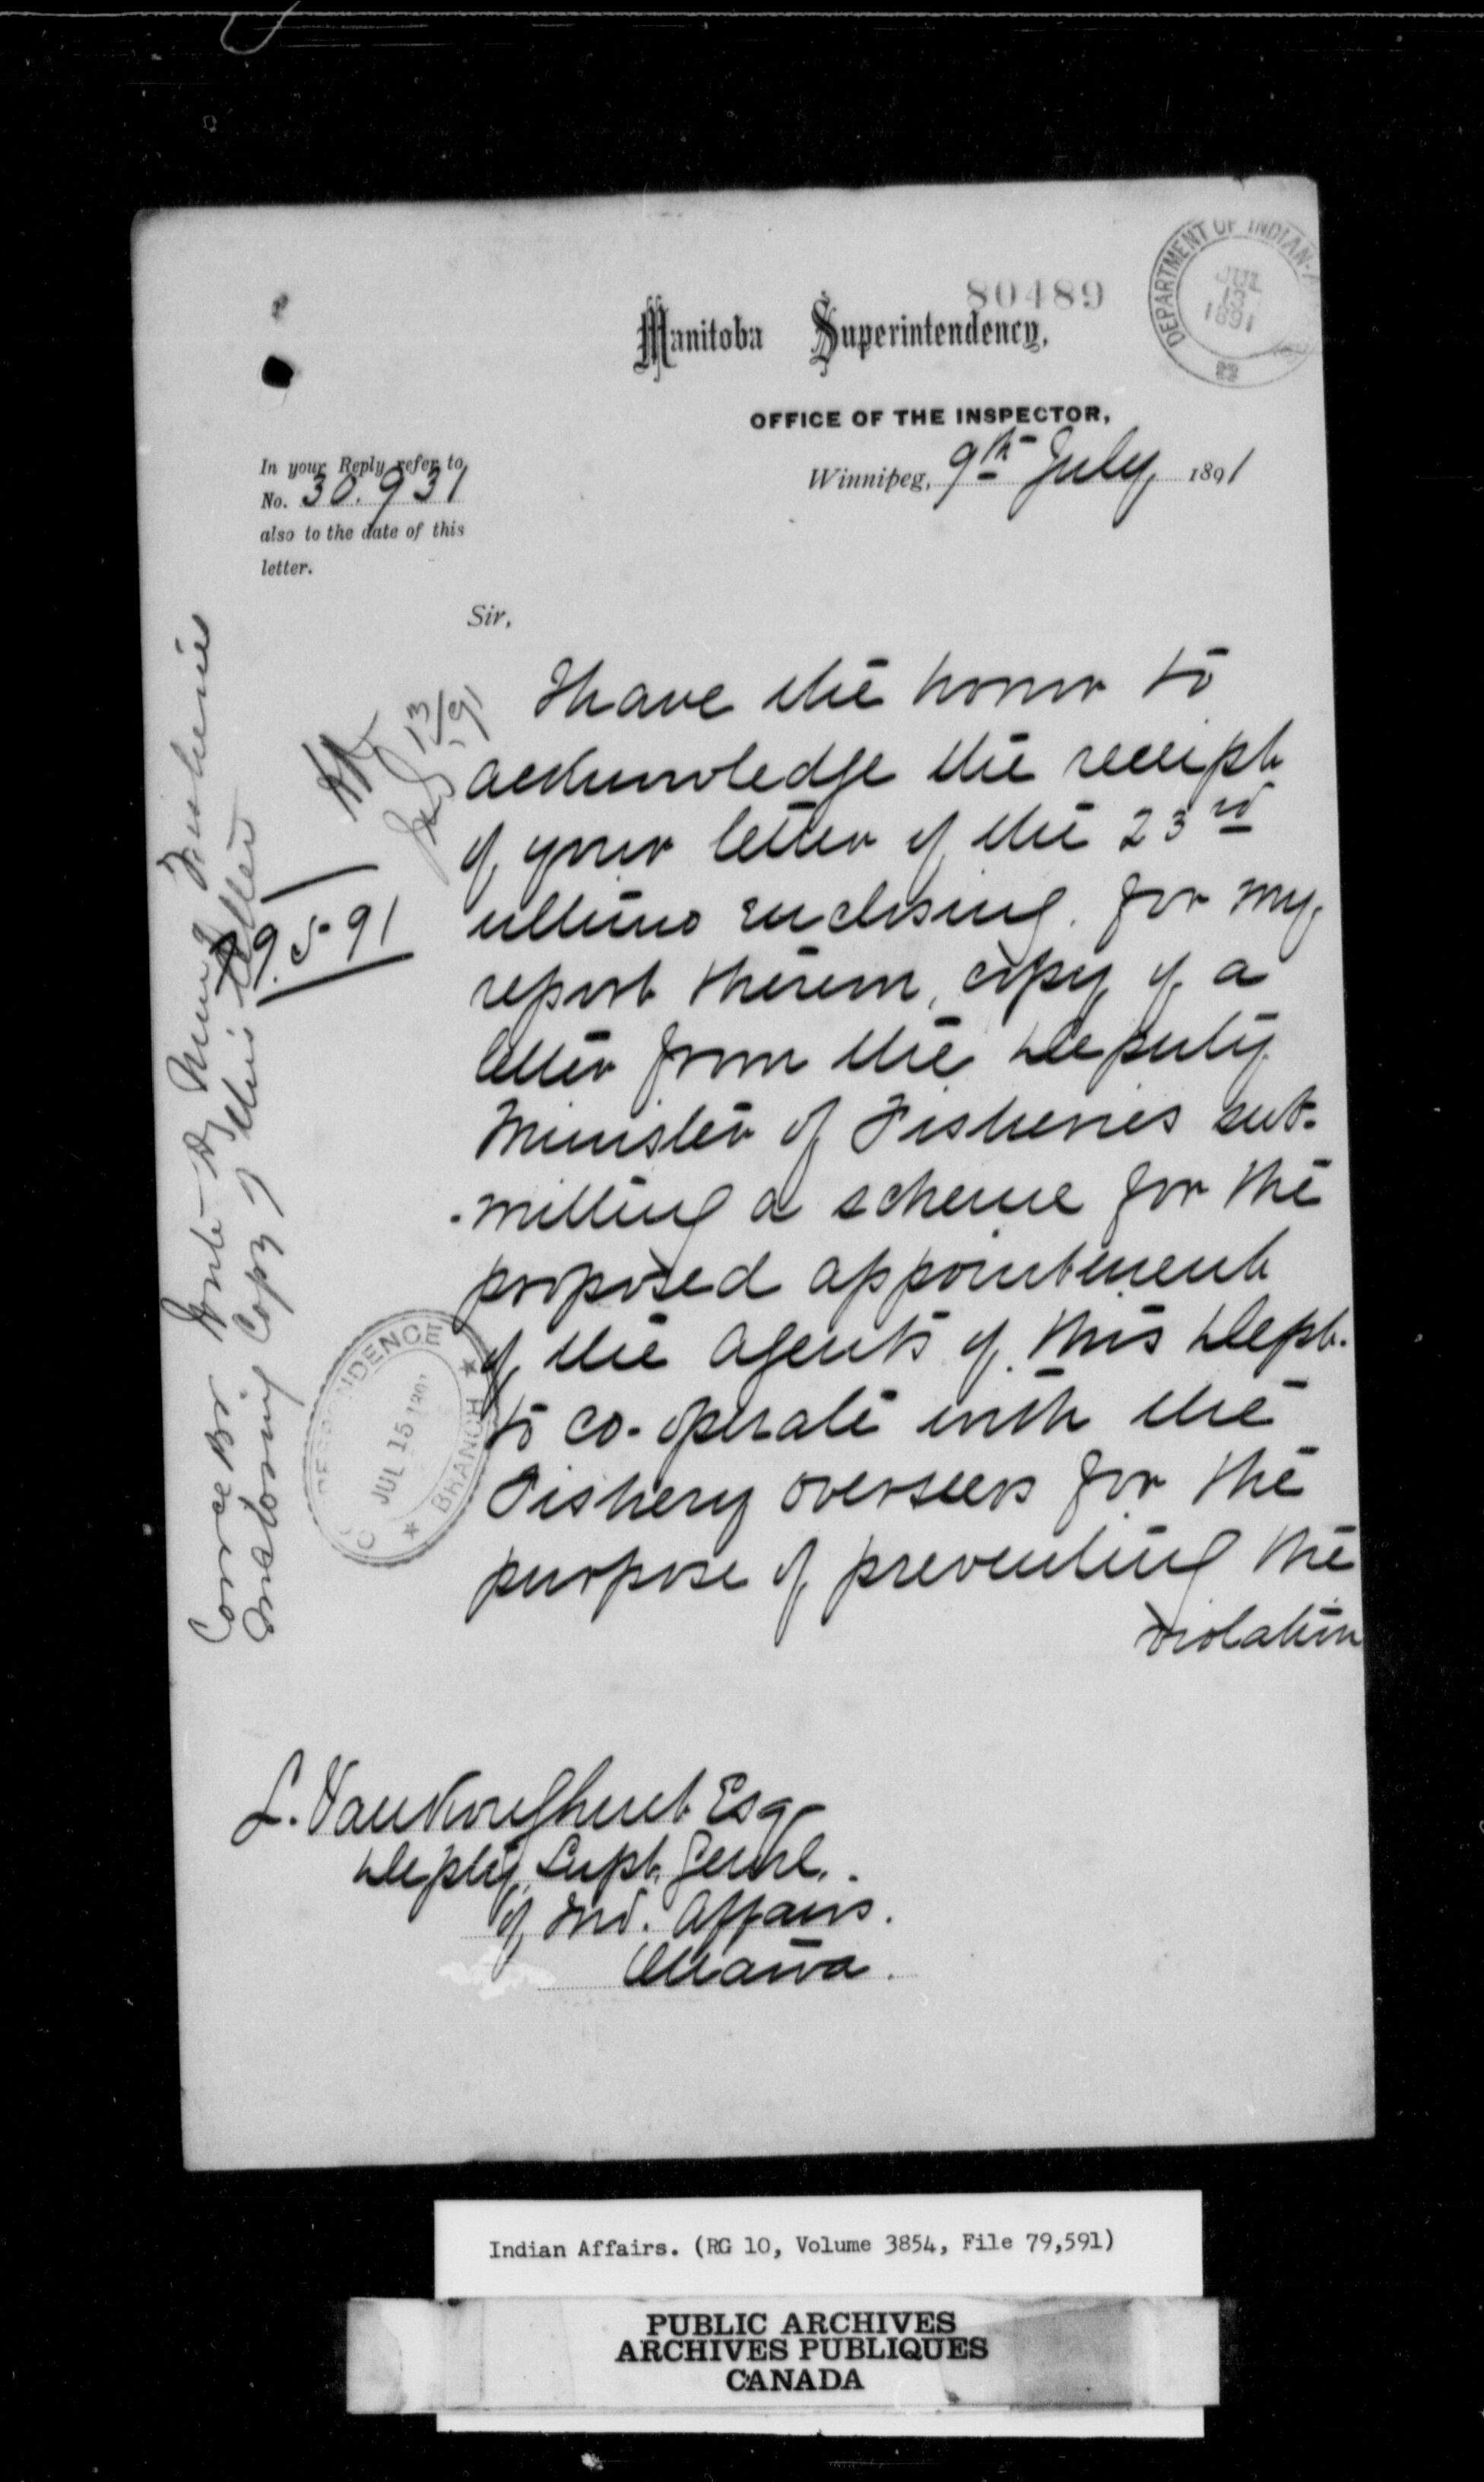 80489
DEPARTMENT OF INDIAN
JUL
13
1891
Manitoba Superintendency,
OFFICE OF THE INSPECTOR,
Winnipeg, 9th July 1891
In your Reply refer to
No. 30.931
also to the date of this
letter.
Sir,
I have the honor to
acknowledge the receipt
of your letter of the 23rd
ultimo enclosing, for my
report thereon, copy of a
letter from the Deputy
Minister of Fisheries sub-
-mitting a scheme for the
proposed appointment
of the Agents of this Dept.
to co-operate with the
Fishery overseers for the
purpose of preventing the
violation
L. Vankoughnet Esq
Depty Supt. Genl.
of Ind. Affairs.
Ottawa.
July 13/91
79.5-91
Corrce Br Write Dy Minr Fisheries
enclosing Copy of this letter
JUL 15 1891
BRANCH
Indian Affairs. (RG 10, Volume 3854, File 79,591)
PUBLIC ARCHIVES
ARCHIVES PUBLIQUES
CANADA